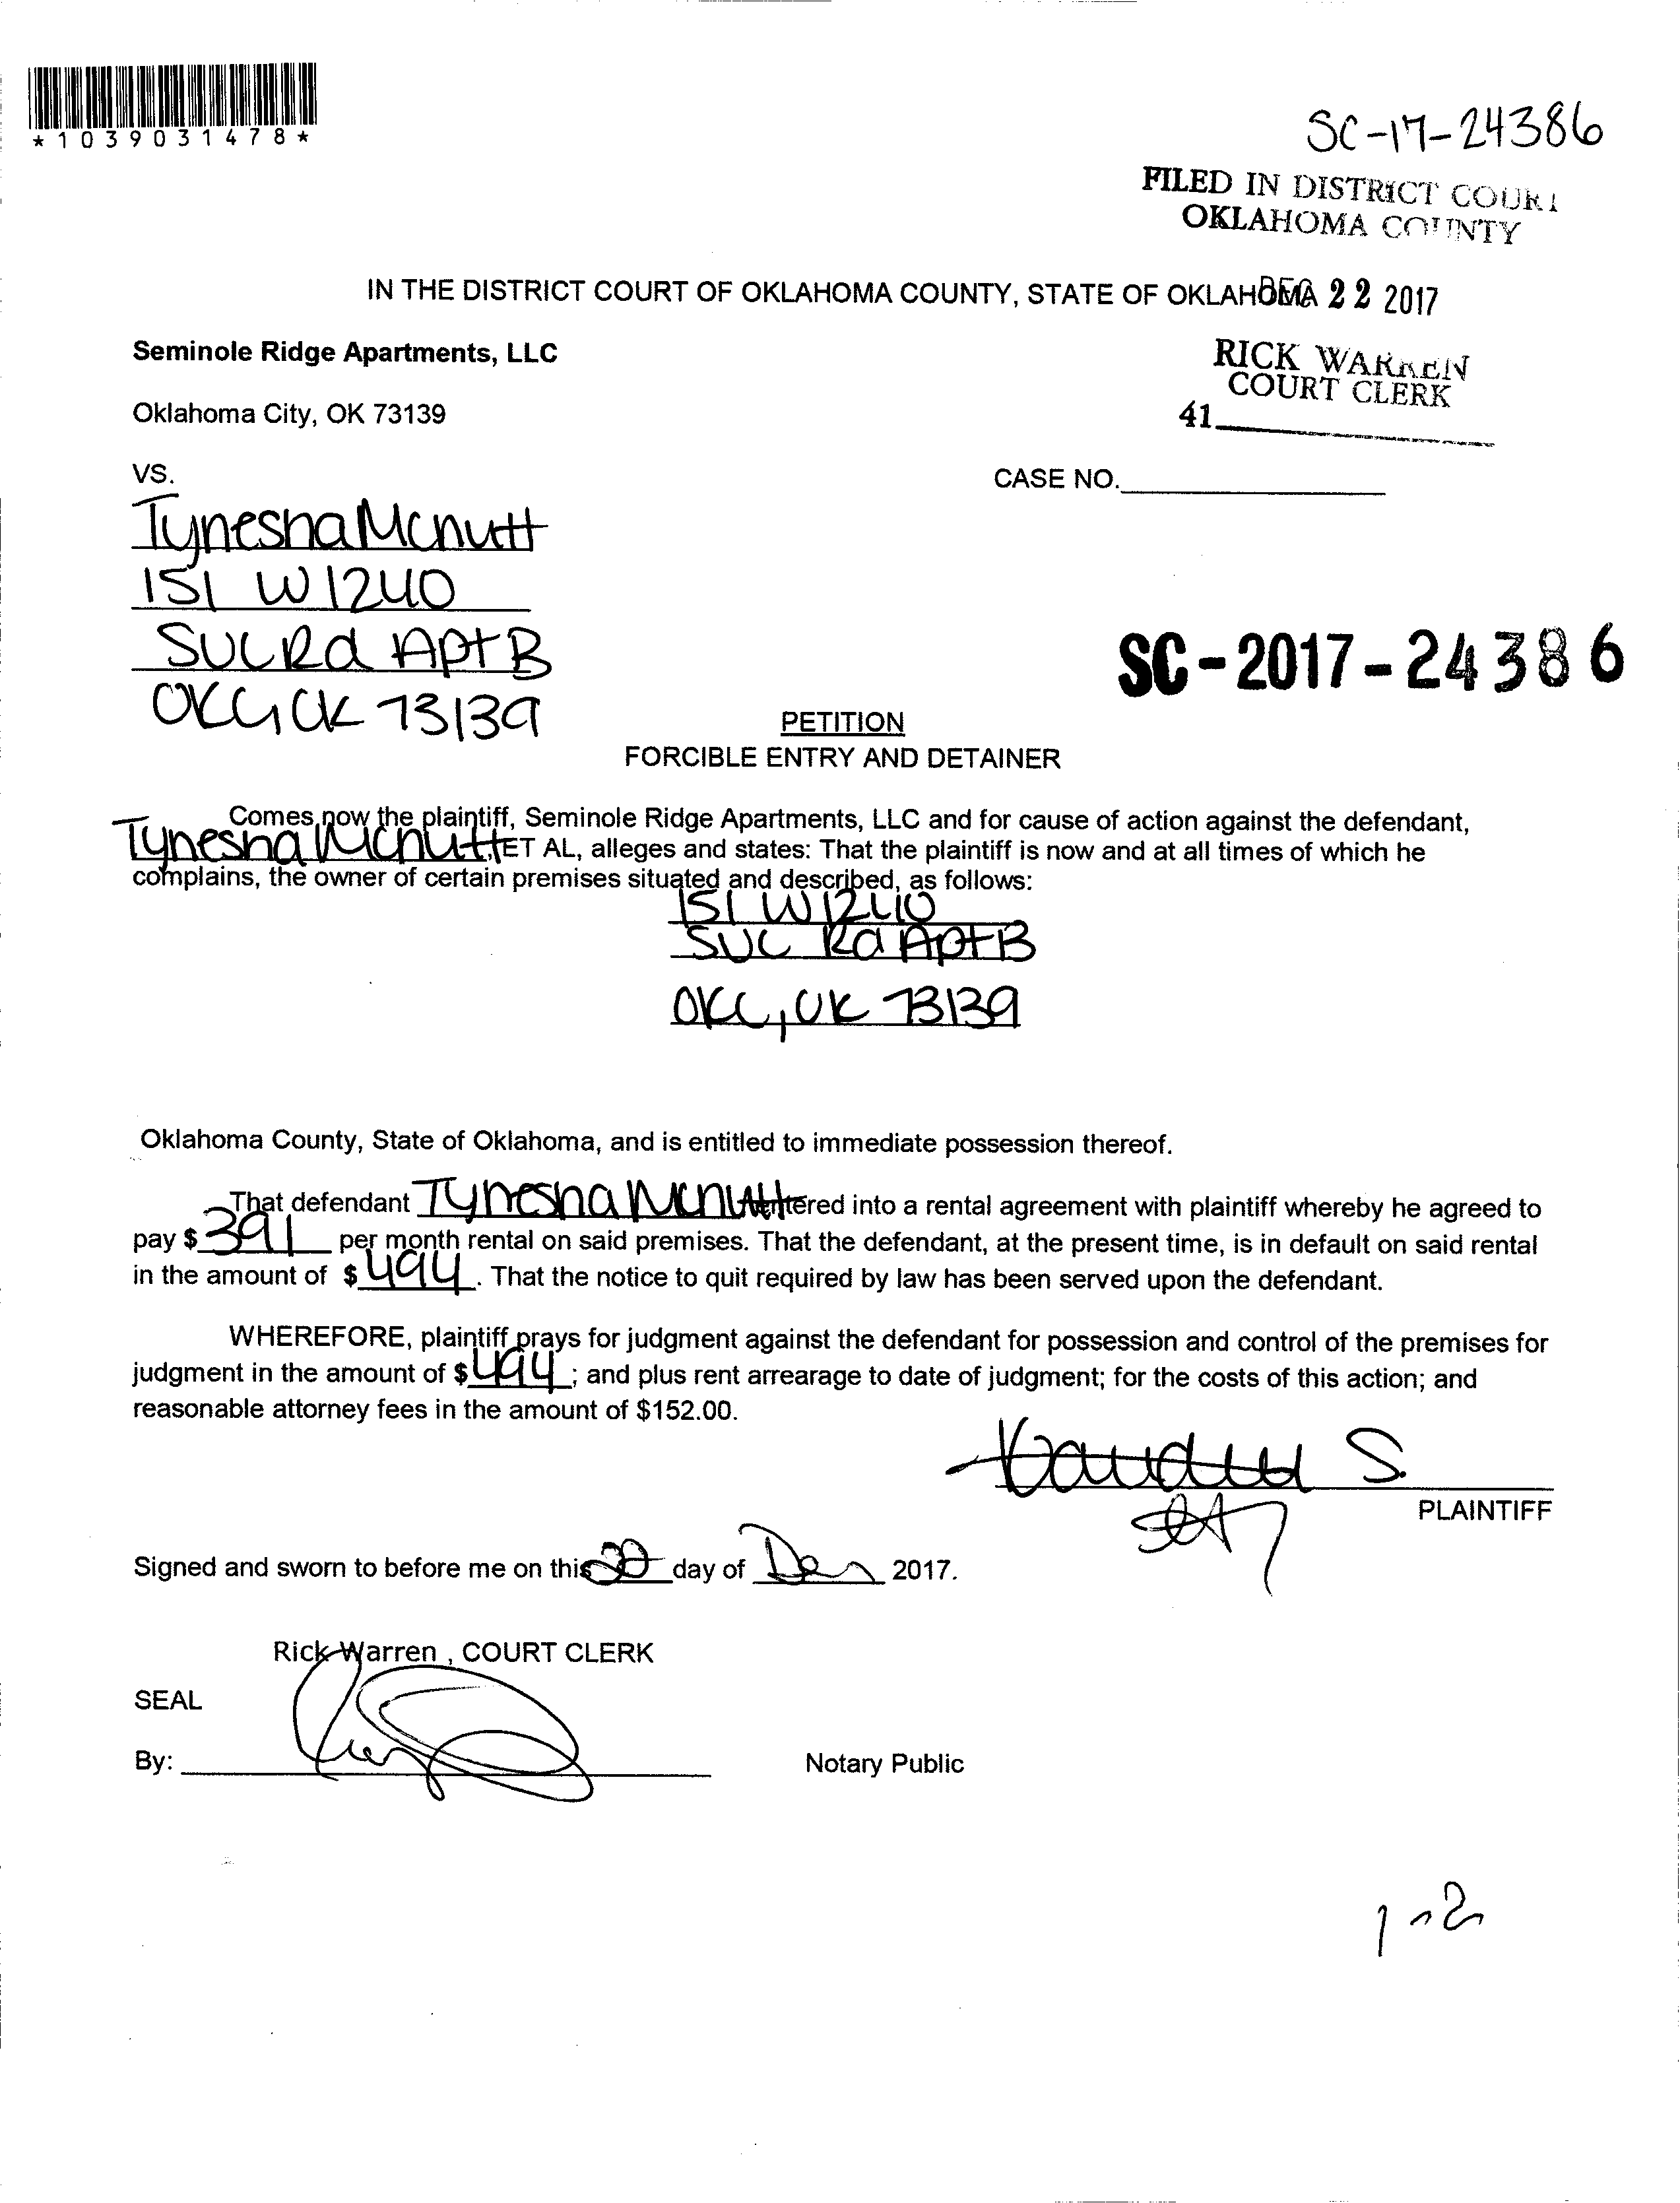 *1039031478*
SC-17-24386
FILED IN DISTRICT COURT
OKLAHOMA COUNTY
IN THE DISTRICT COURT OF OKLAHOMA COUNTY, STATE OF OKLAHOMA
DEC 22 2017
Seminole Ridge Apartments, LLC
RICK WARREN
COURT CLERK
Oklahoma City, OK 73139
41
VS.
CASE NO.
Tynesha Mcnutt
151 W 1240
SW Rd Apt B
SC-2017-24386
OKC, OK 73139
PETITION
FORCIBLE ENTRY AND DETAINER
Comes now the plaintiff, Seminole Ridge Apartments, LLC and for cause of action against the defendant,
Tynesha Mcnutt, ET AL, alleges and states: That the plaintiff is now and at all times of which he
complains, the owner of certain premises situated and described, as follows:
151 W 1240
Rd Apt B
OKC, OK 73139
Oklahoma County, State of Oklahoma, and is entitled to immediate possession thereof.
That defendant Tynesha Mcnutt entered into a rental agreement with plaintiff whereby he agreed to
pay $ 391 per month rental on said premises. That the defendant, at the present time, is in default on said rental
in the amount of $ 494. That the notice to quit required by law has been served upon the defendant.
WHEREFORE, plaintiff prays for judgment against the defendant for possession and control of the premises for
judgment in the amount of $ 494; and plus rent arrearage to date of judgment; for the costs of this action; and
reasonable attorney fees in the amount of $152.00.
S.
PLAINTIFF
Signed and sworn to before me on this day of Dec 2017.
Rick Warren , COURT CLERK
SEAL
By:
Notary Public